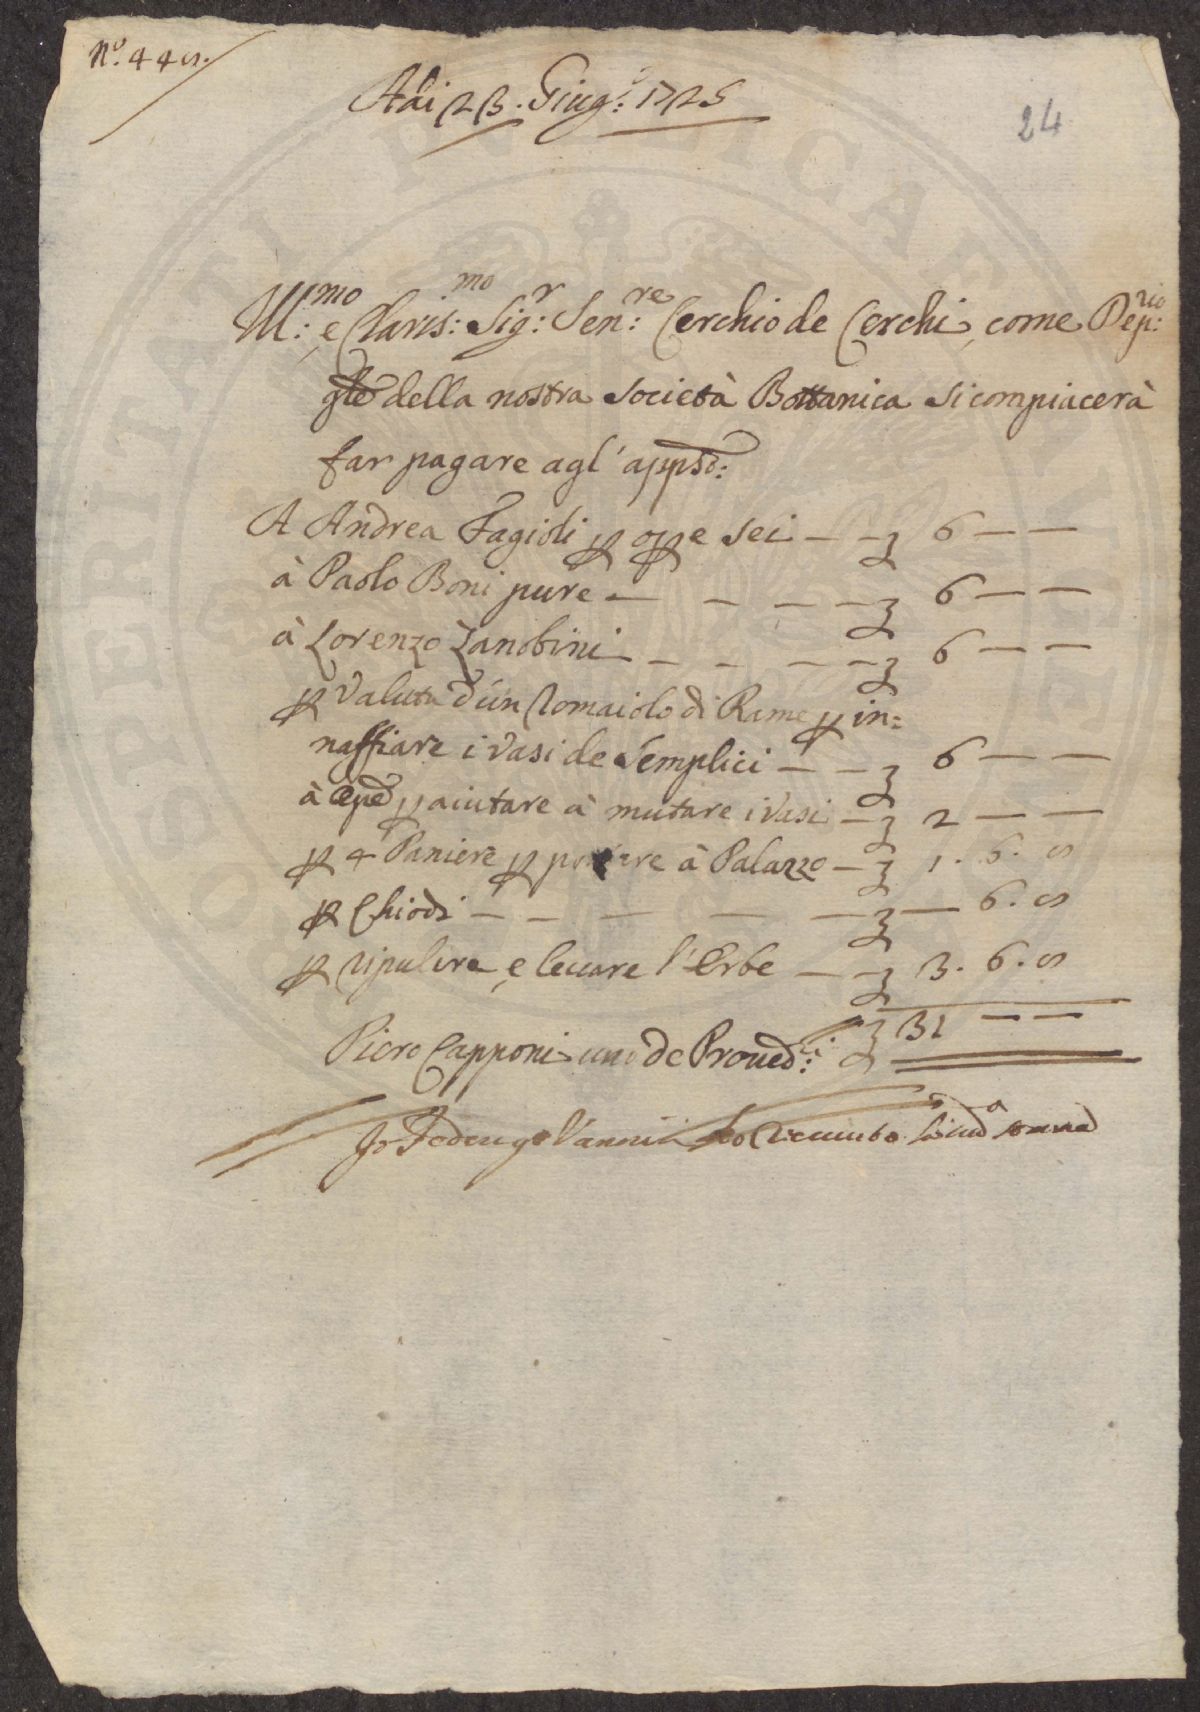 N.º 44 8.
Adi 23. Giug.º: 1725
24
Ill:mo e Claris:mo Sig:r Sen:re Cerchio de Cerchi, come Dep:rio
gle della nostra Società Bottanica si compiacerà
far pagare agl' appsd:
A Andrea Fagioli p opp e sei — — 3 6 — —
à Paolo Boni pure — — — — 3 6 — —
à Lorenzo Zanobini — — — — 3 6 — —
p Valuta d'un Romaiolo di Rame p in=
naffiare i vasi de Semplici — — 3 6 — —
à p aiutare à mutare i vasi — 3 2 — —
p 4 Paniere p portare à Palazzo — 3 1. 6. 8
p Chiodi — — — — — 3 — 6. 8
p ripulire, e levare l'Erbe — — 3 3. 6. 8
3 31 — —
Piero Capponi uno de Proved:ri
Io Vannini ho riceuuto la sud.a somma